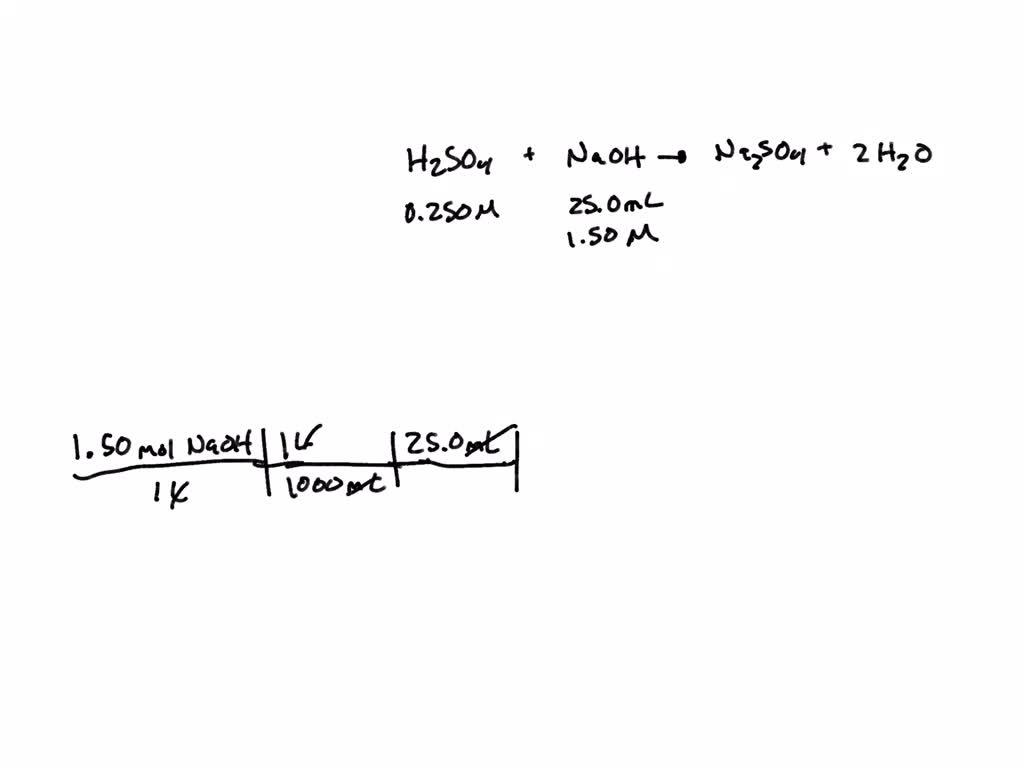 H₂SO₄ + NaOH → Na₂SO₄ + 2 H₂O
0.250 M 25.0 mL
1.50 M
1.50 mol NaOH | 1 L | 25.0 mL |
1 L | 1000 mL |